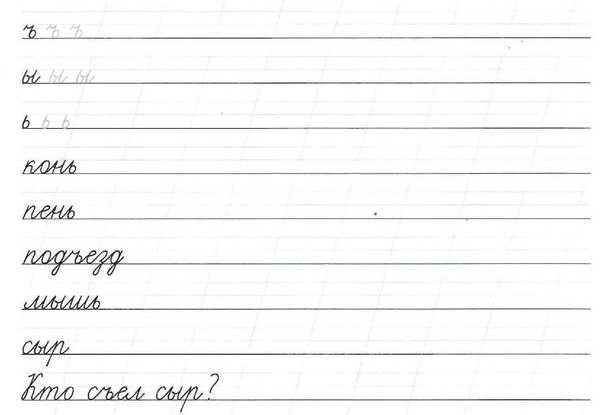 ъ ъ ъ
ы ы ы
ь ь ь
конь
пень
подъезд
мышь
сыр
Кто съел сыр?